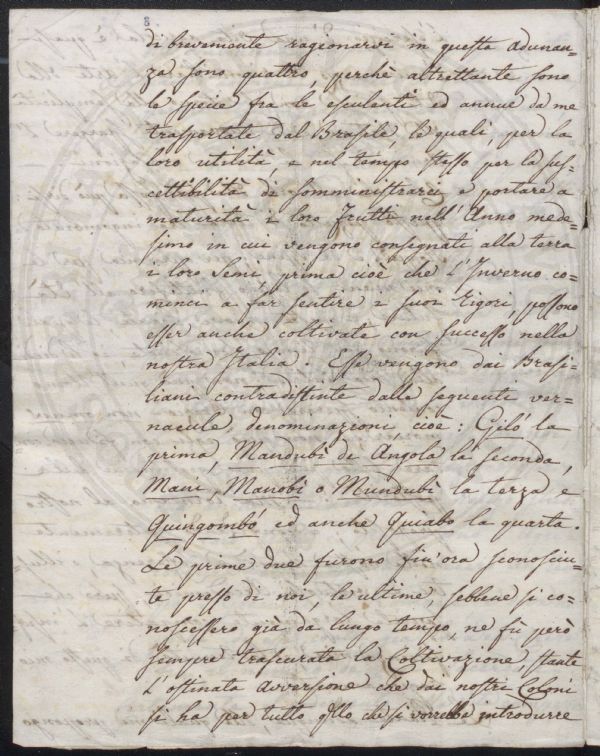 8
di brevemente ragionarvi in questa adunan=
za sono quattro, perchè altrettante sono
le specie fra le esculenti ed annue da me
trasportate dal Brasile, le quali, per la
loro utilità, e nel tempo stesso per la sus=
cettibilità di somministrarci e portare a
maturità i loro frutti nell'Anno mede=
simo in cui vengono consegnati alla terra
i loro Semi, prima cioè che l'Inverno co=
minci a far sentire i suoi Rigori, possono
esser anche coltivate con successo nella
nostra Italia. Esse vengono dai Brasi=
liani contradistinte dalle seguenti ver=
nacule denominazioni, cioè: Gilò la
prima, Mandubì de Angola la seconda,
Mani, Manobi o Mundubì la terza e
Quingombó ed anche Quiabo la quarta.
Le prime due furono fin'ora sconosciu=
te presso di noi, le ultime, sebbene si co=
noscessero già da lungo tempo, ne fù però
sempre trascurata la Coltivazione, stante
l'ostinata avversione che dai nostri Coloni
si ha per tutto qllo che si vorrebbe introdurre